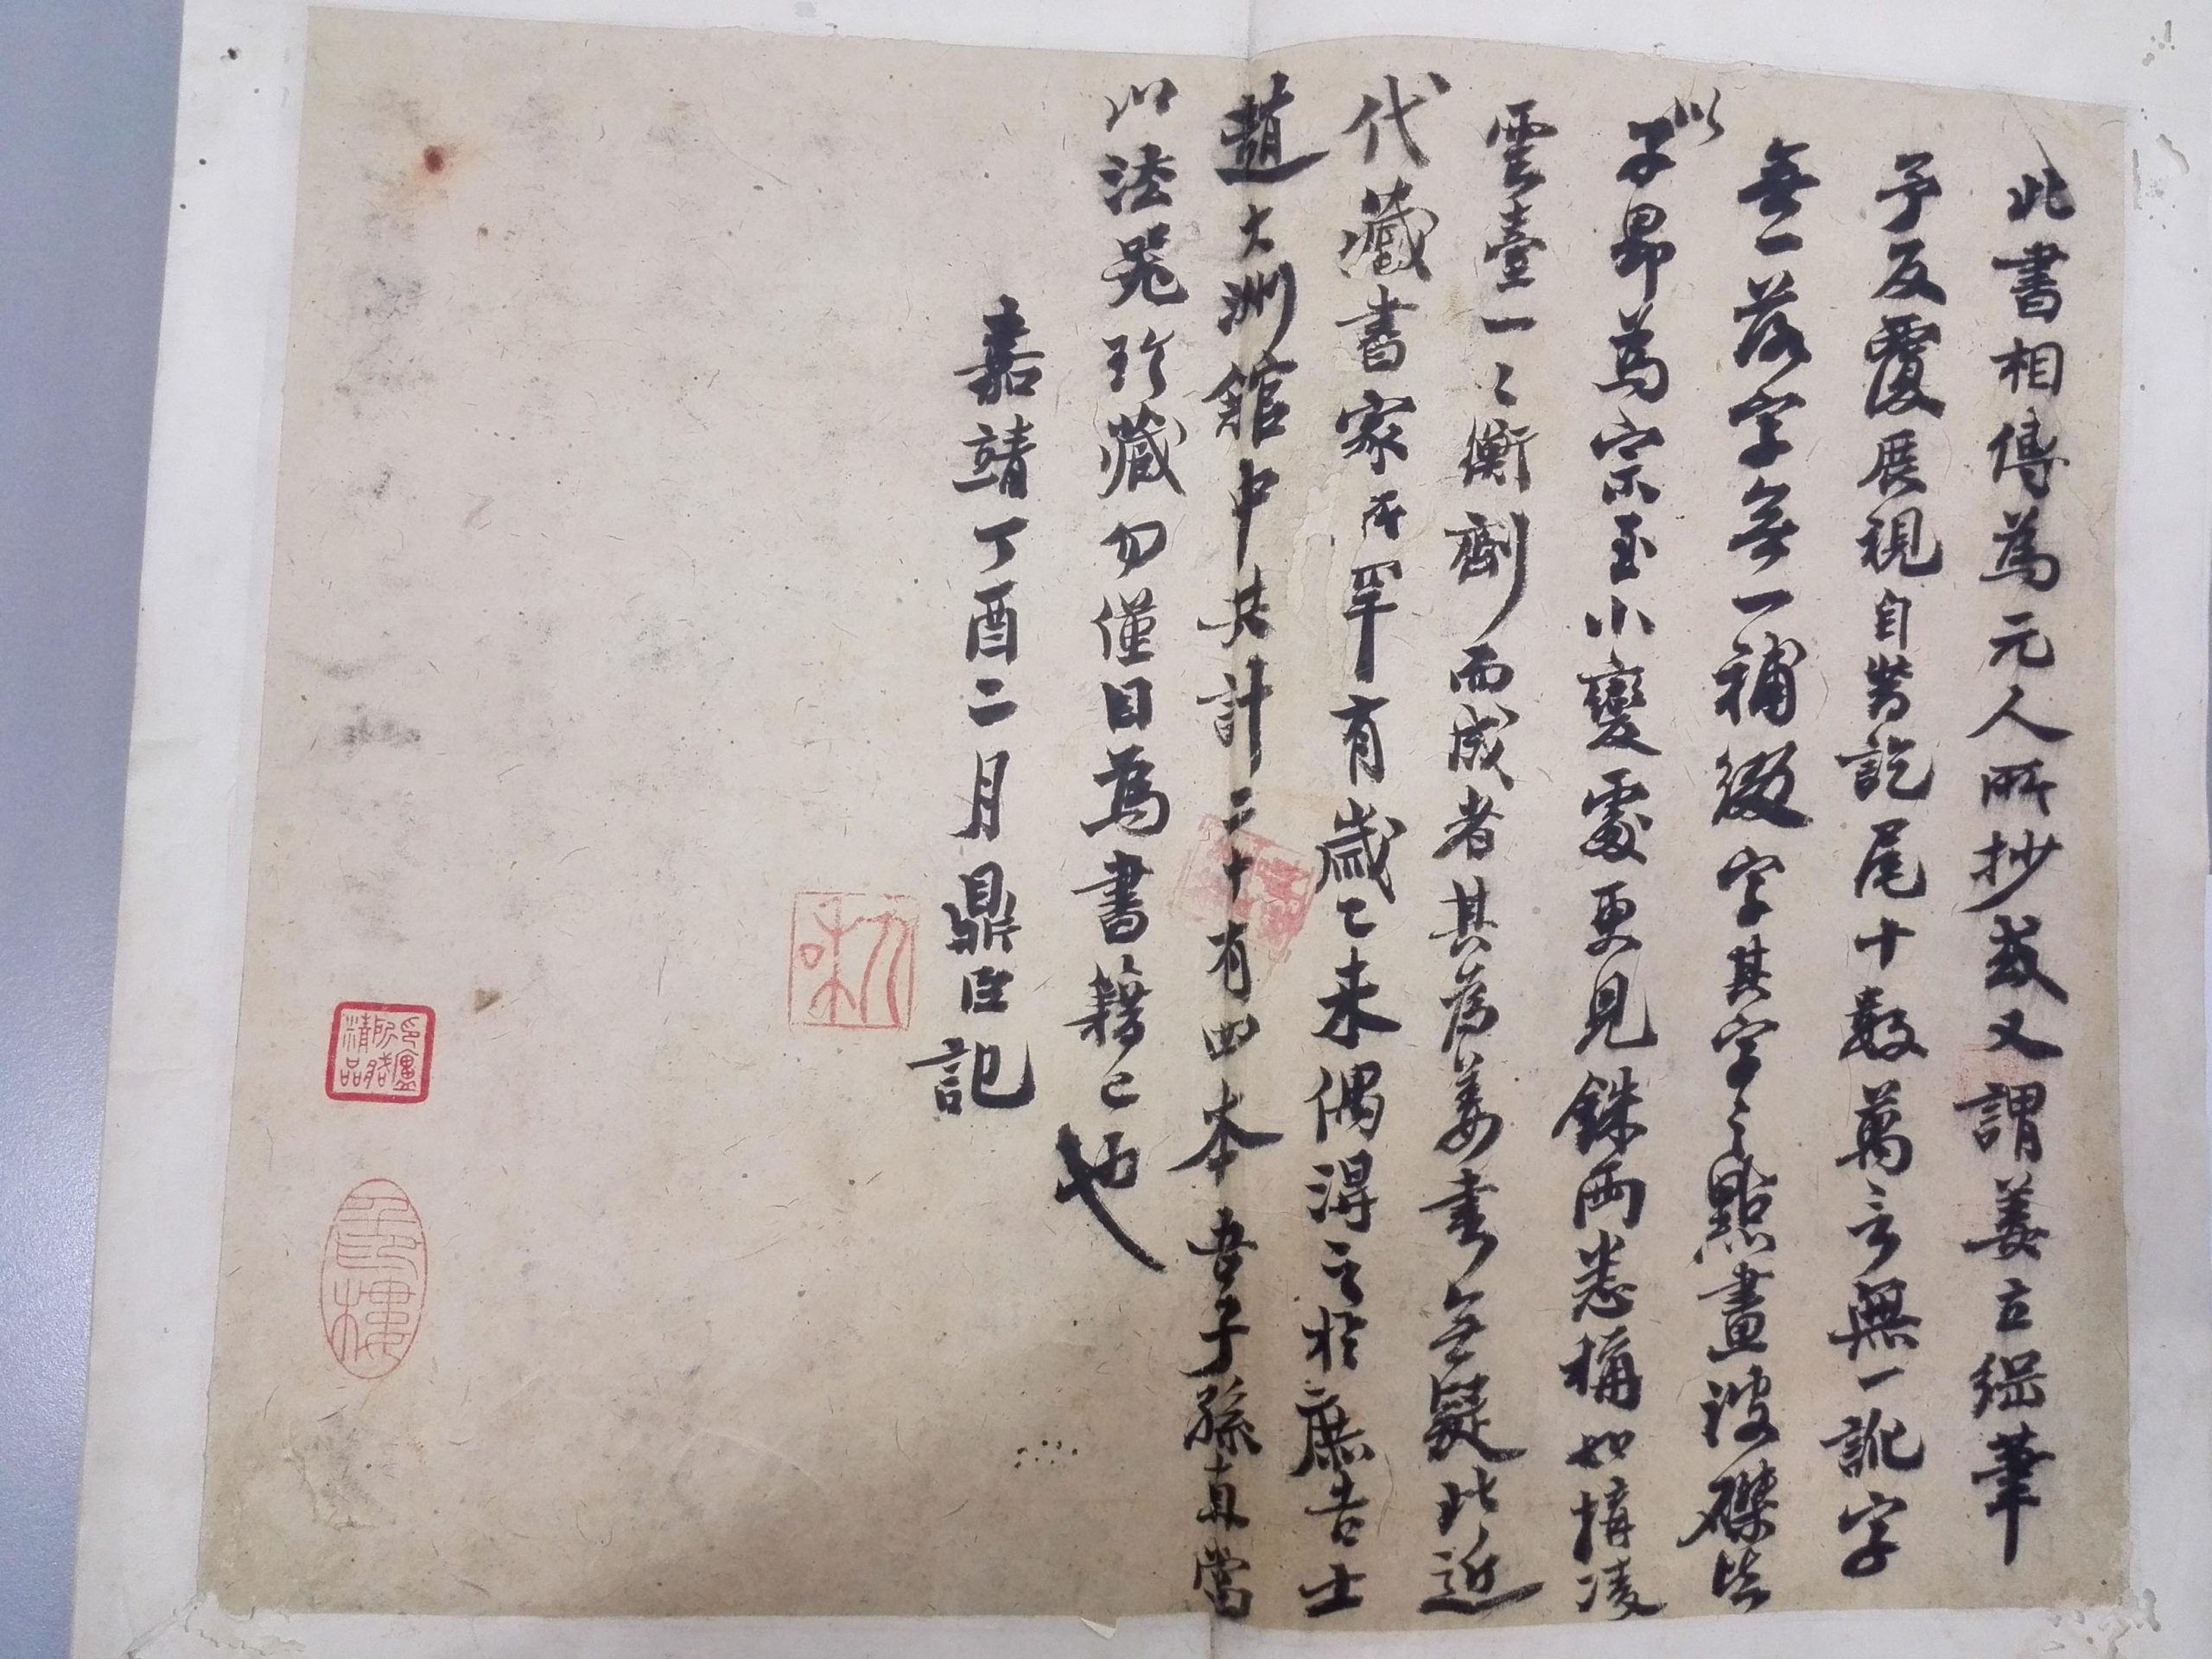 此書相傳為元人所抄或又謂姜立綱筆
予反覆展視自暬訖尾十數萬言無一訛字
無一落字無一補綴字其字之點畫波磔皆
以子昂為宗至小變處更見銖兩悉稱如搆凌
雲臺一〻衡劑而成者其為姜書無疑此近
代藏書家所罕有歲乙未偶得之於庶吉士
趙大洲館中共計二十有四本吾子孫真當
以法器珍藏勿僅目為書籍已也
嘉靖丁酉二月鼎臣記